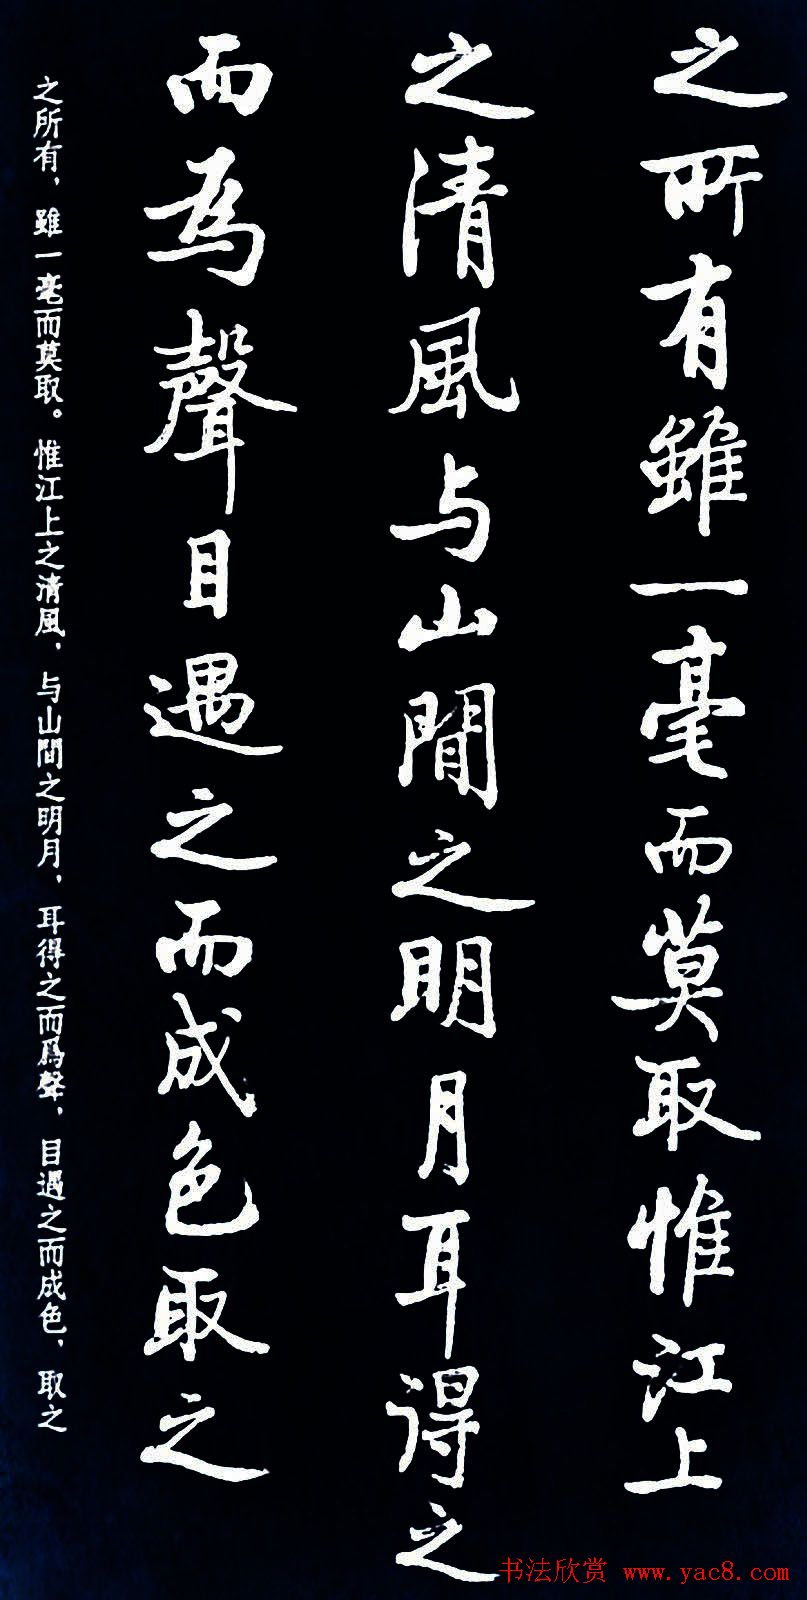 之所有雖一毫而莫取惟江上
之清風与山間之明月耳得之
而為聲目遇之而成色取之
之所有，雖一毫而莫取。惟江上之清風，与山間之明月，耳得之而爲聲，目遇之而成色，取之
书法欣赏 www.yac8.com